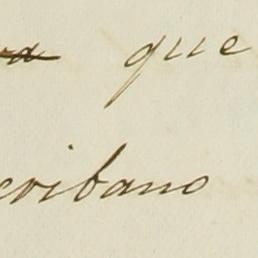 que
cribano